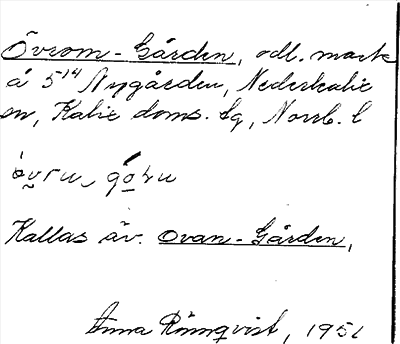 Övrom-Gården, odl. mark
å 5¹⁴ Nygården, Nederkalix
sn, Kalix doms. lg, Norrb. l
Kallas äv. Ovan-Gården,
Anna Rönnqvist, 1951